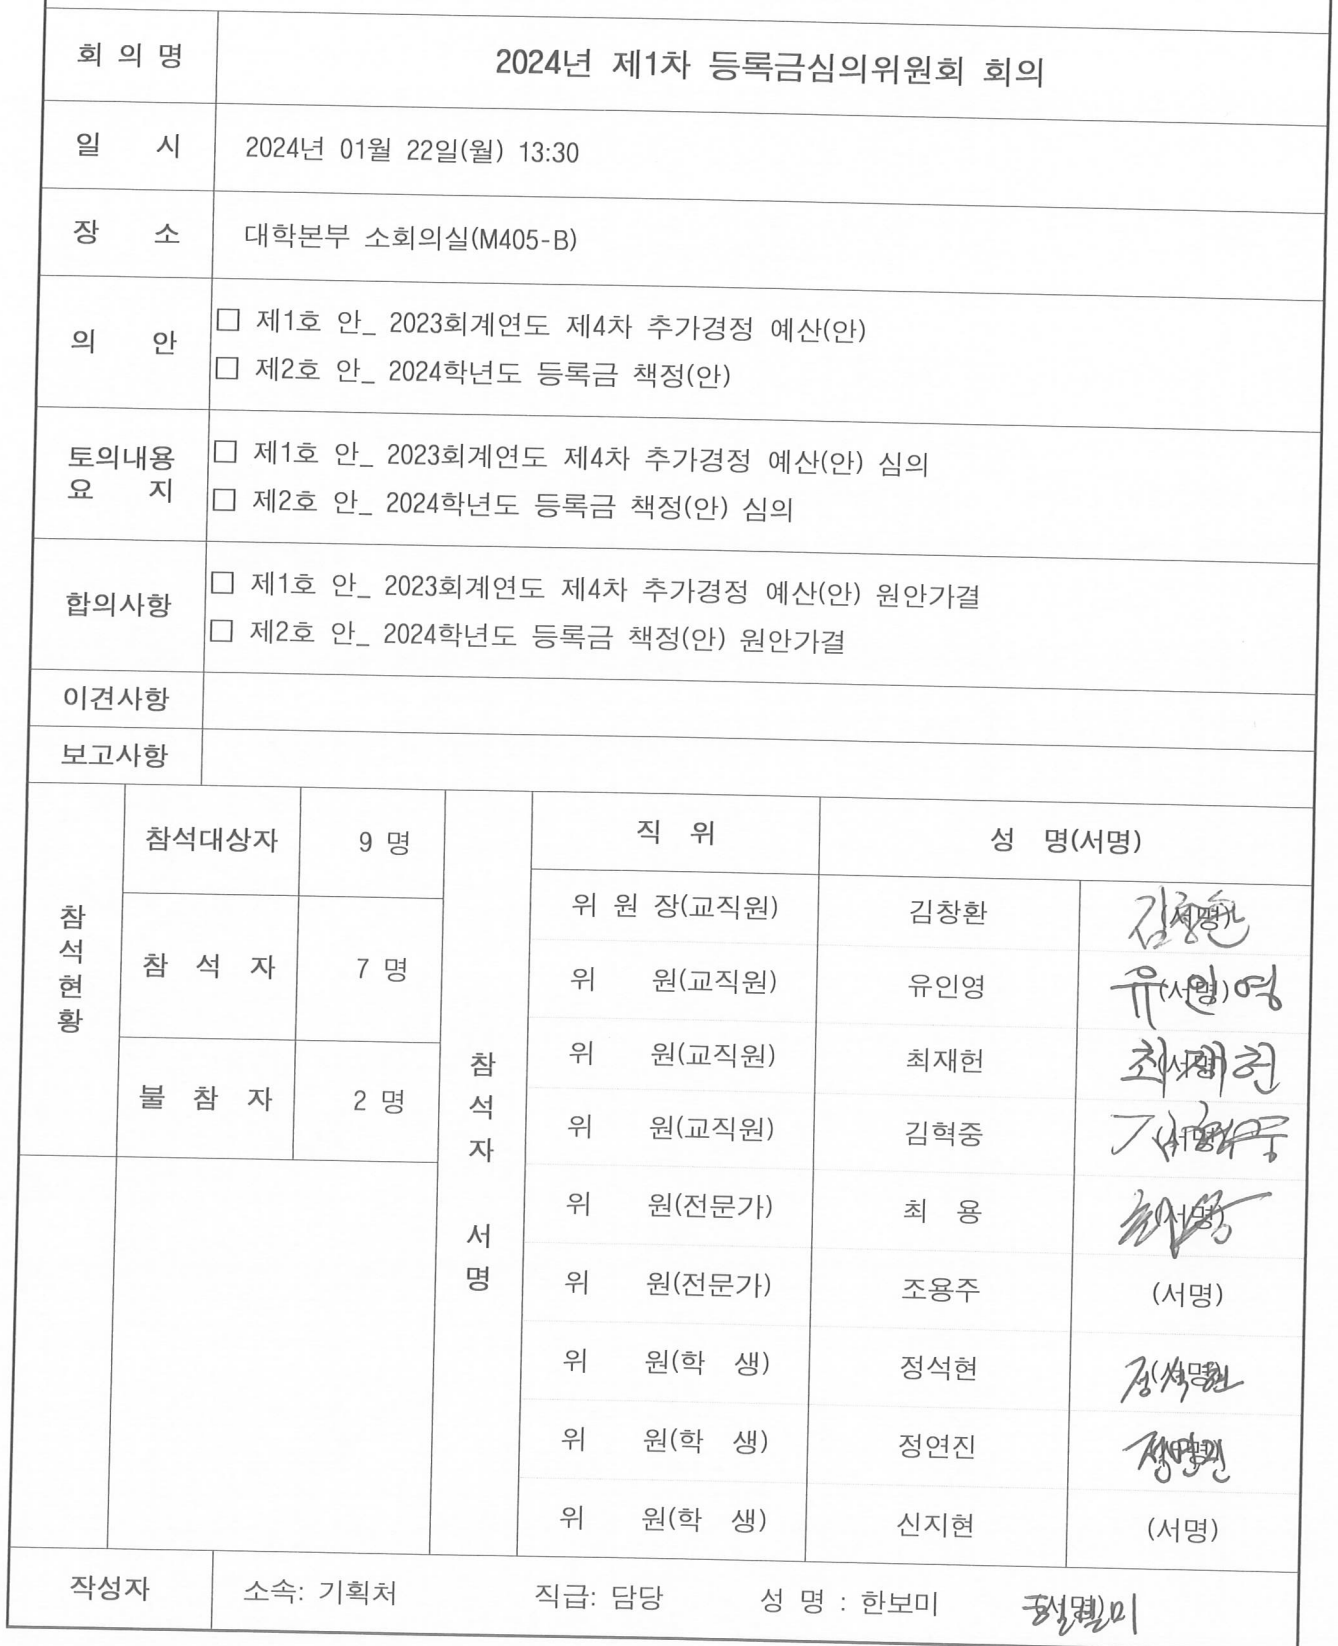 회 의 명
2024년 제1차 등록금심의위원회 회의
일 시
2024년 01월 22일(월) 13:30
장 소
대학본부 소회의실(M405-B)
의 안
□ 제1호 안_ 2023회계연도 제4차 추가경정 예산(안)
□ 제2호 안_ 2024학년도 등록금 책정(안)
토의내용
요 지
□ 제1호 안_ 2023회계연도 제4차 추가경정 예산(안) 심의
□ 제2호 안_ 2024학년도 등록금 책정(안) 심의
합의사항
□ 제1호 안_ 2023회계연도 제4차 추가경정 예산(안) 원안가결
□ 제2호 안_ 2024학년도 등록금 책정(안) 원안가결
이견사항
보고사항
참석현황
참석대상자 9 명
참 석 자 7 명
불 참 자 2 명
참석자 서명
직 위 성 명(서명)
위 원 장(교직원) 김창환 (서명) 김창환
위 원(교직원) 유인영 (서명) 유인영
위 원(교직원) 최재헌 (서명) 최재헌
위 원(교직원) 김혁중 (서명) 김혁중
위 원(전문가) 최 용 (서명) 최용
위 원(전문가) 조용주 (서명)
위 원(학 생) 정석현 (서명) 정석현
위 원(학 생) 정연진 (서명) 정연진
위 원(학 생) 신지현 (서명)
작성자
소속: 기획처 직급: 담당 성 명 : 한보미 (서명) 한보미